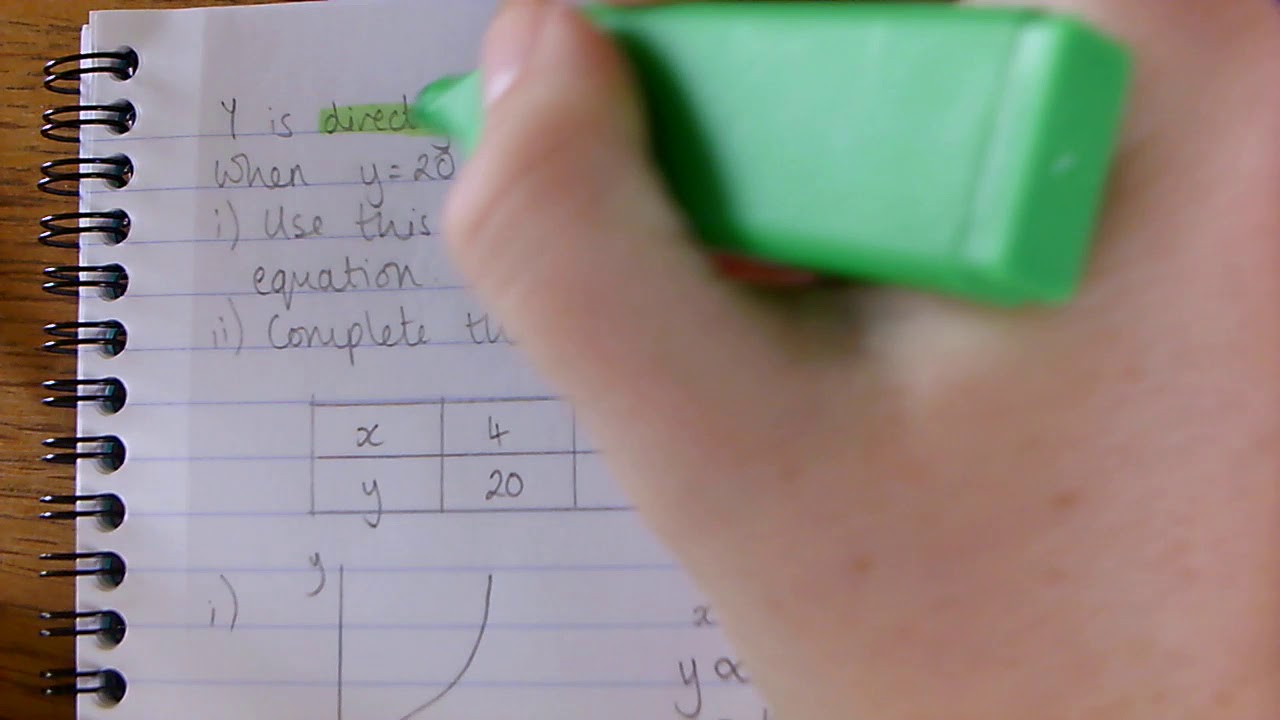 Y is direct
when y=20
i) Use this
equation.
ii) Complete th
x 4
y 20
y
i)
x
y ∝